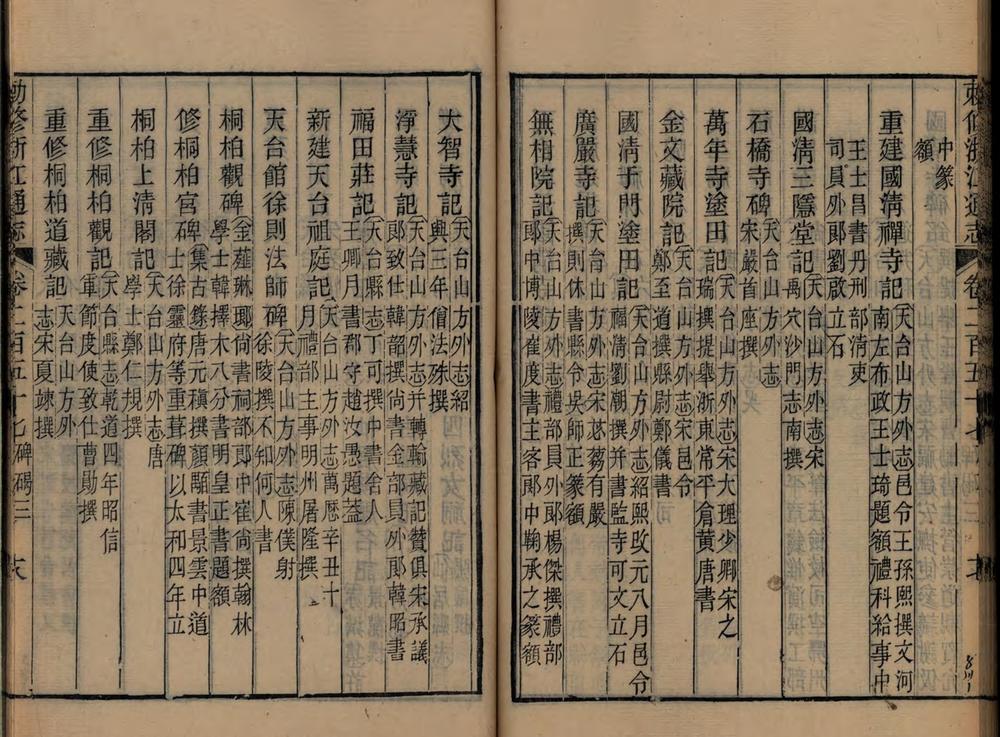 敕修浙江通志 卷二百五十七
中篆
額
重建國清禪寺記 天台山方外志邑令王孫熙撰文河
南左布政王士琦題額禮科給事中
王士昌書丹刑部清吏
司員外郎劉啟立石
國清三隱堂記 天台山方外志宋
禹穴沙門志南撰
石橋寺碑 天台山方外志
宋嚴首座撰
萬年寺塗田記 天台山方外志宋大理少卿宋之
瑞撰提舉浙東常平倉黃唐書
金文藏院記 天台山方外志宋邑令
鄭至道撰縣尉鄭儀書
國清于門塗田記 天台山方外志紹熙改元八月邑令
福清劉朝撰并書監寺可文立石
廣嚴寺記 天台山方外志宋苾蒭有嚴
撰則休書縣令吳師正篆額
無相院記 天台山方外志禮部員外郎楊傑撰禮部
郎中博陵崔度書主客郎中鞠承之篆額
大智寺記 天台山方外志紹
興三年僧法殊撰
淨慧寺記 天台山方外志并轉輪藏記贊俱宋承議
郎致仕韓韶撰尚書金部員外郎韓昭書
福田莊記 天台縣志丁可撰中書舍人
王卿月書郡守趙汝愚題蓋
新建天台祖庭記 天台山方外志萬歷辛丑十
月禮部主事明州屠隆撰
天台館徐則法師碑 天台山方外志陳僕射
徐陵撰不知何人書
桐柏觀碑 金薤琳瑯尚書祠部郎中崔尚撰翰林
學士韓擇木八分書明皇正書題額
修桐柏宮碑 集古錄唐元稹撰顏顒書景雲中道
士徐靈府等重葺碑以太和四年立
桐柏上清閣記 天台山方外志唐
學士鄭仁規撰
重修桐柏觀記 天台縣志乾道四年昭信
軍節度使致仕曹勛撰
重修桐柏道藏記 天台山方外
志宋夏竦撰
敕修浙江通志 卷二百五十七 碑碣三